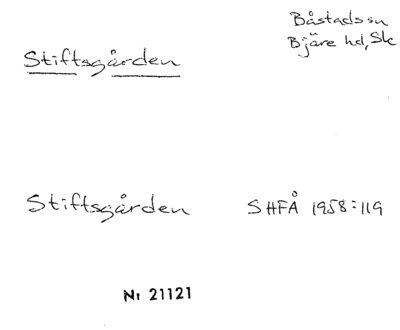 Båstads sn
Bjäre hd, Sk
Stiftsgården
Stiftsgården SHFÅ 1958:119
Nr 21121